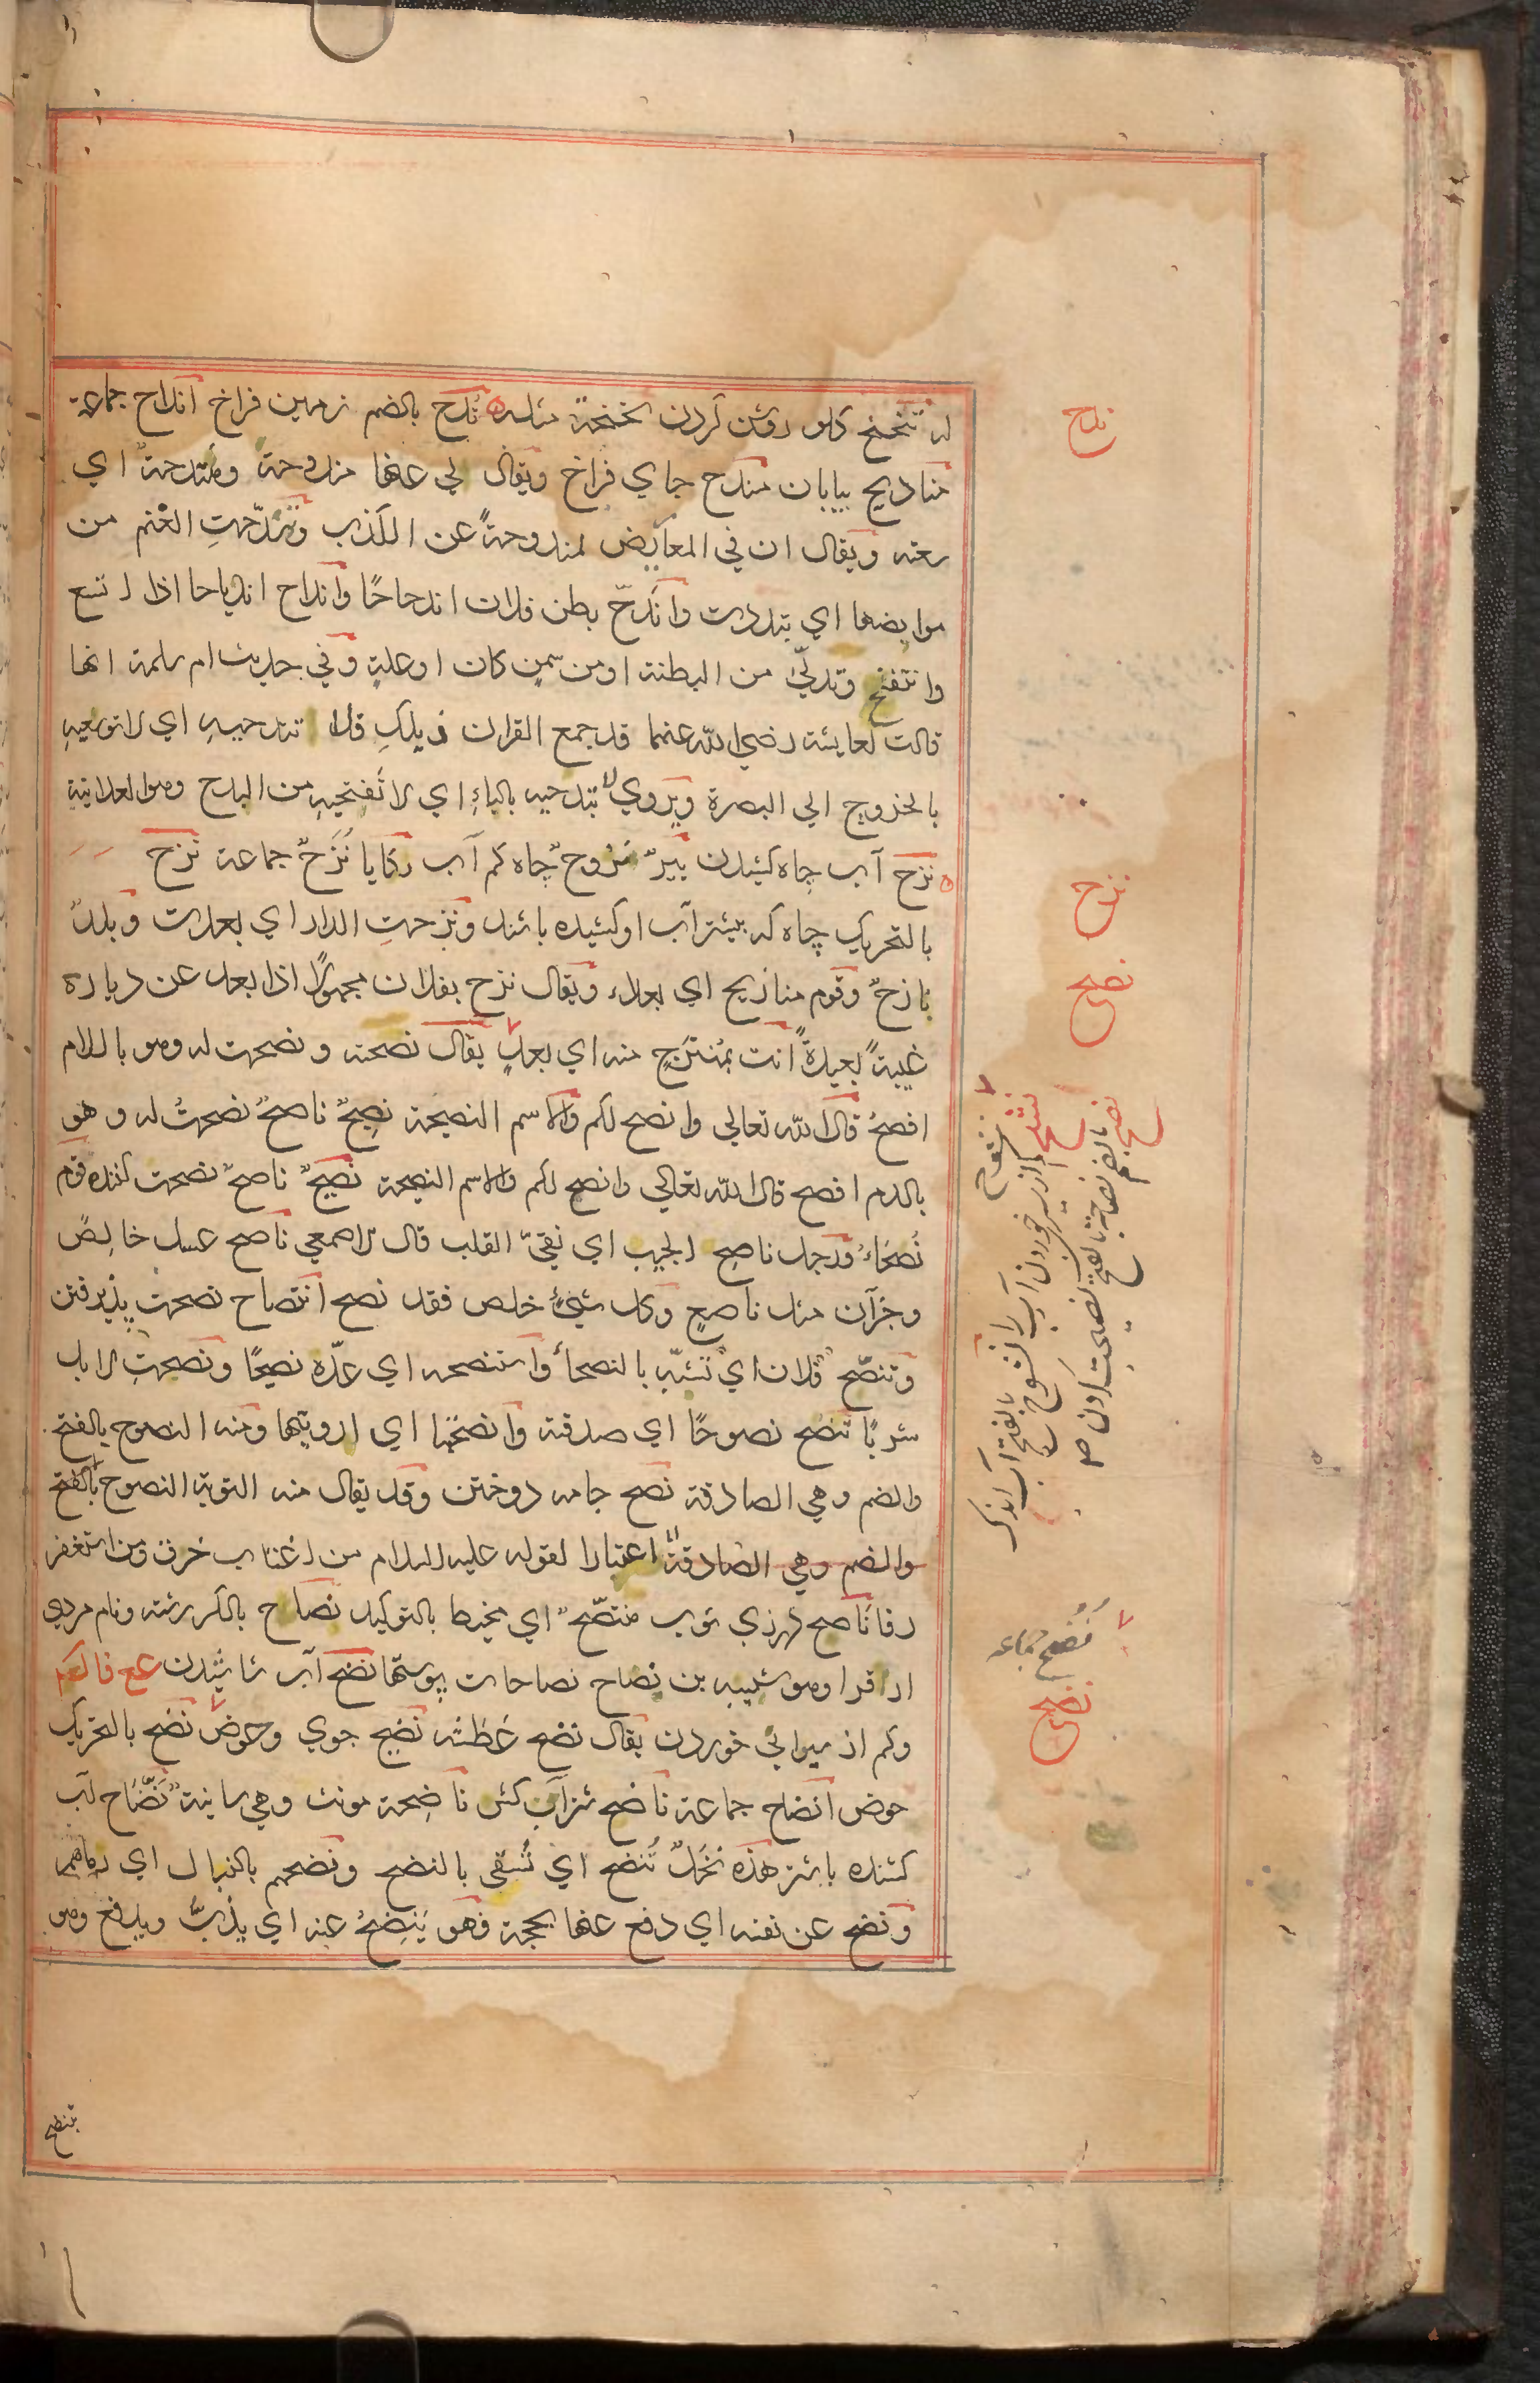 له تنحنح گلو روشن کردن نحنحة مثله ندح بالضم زمین فراخ انداح جماعة
منادیح بیابان مندح جای فراخ ویقال لی عنها مندوحة ومنتدحة ای
سعته ویقال ان فی المعاریض لمندوحةً عن الکذب وتندّحتِ الغنم من
مرابضها ای تبددت واندحّ بطن فلان اندحاحًا وانداح اندیاحا اذا اتسع
وانتفخ وتدلّی من البطنة او من سمن کان او علة وفی حدیث ام سلمة انها
قالت لعایشة رضی الله عنهما قد جمع القران ذیلکِ فلا تندحیهِ ای لا توسعیهِ
بالخروج الی البصرة ویروی لا تبدحیه بالباءِ ای لا تفتحیهِ من البدح وهو العلانیة
نزح آب چاه کشیدن بیرٌ نزوحٌ چاه کم آب رکایا نُزُحٌ جماعة نزح
بالتحریک چاه که بیشتر آب او کشیده باشند ونزحتِ الدار ای بعدت وبلدٌ
نازحٌ وقوم منازیح ای بعداء ویقال نزح بفلان مجهولًا اذا بعد عن دیاره
غیبةً بعیدةً انت بمُنتزحٍ منه ای ببعدٍ یقال نصحته ونصحت له وهو باللام
افصحُ قال الله تعالی وانصح لکم والاسم النصیحة نصیحٌ ناصحٌ نصحتُ له وهو
باللام افصح قال الله تعالی وانصح لکم والاسم النصیحة نصیحٌ ناصحٌ نصحت کننده قوم
نُصحَاءُ ورجل ناصح الجیب ای نقیّ القلب قال الاصمعی ناصح عسل خالصٌ
وجزآن مثل ناصعٍ وکل شیءٍ خلص فقد نصح انتصاح نصحت پذیرفتن
وتنصّح فلان ای تشبّه بالنصحاءِ واستنصحه ای عدّه نصیحًا ونصحتِ الابل
شربًا تنصح نصوحًا ای صدقته وانصحتها ای ارویتها ومنه النصوح بالفتح
والضم وهی الصادقة نصح جامه دوختن وقد یقال منه التوبة النصوح بالفتح
والضم وهی الصادقة اعتبارا لقوله علیه السلام من اغتاب خرق ومن استغفر
رفا ناصح درزی ثوب منتصّحٌ ای مخیط بالتوکید نصاح بالکسر رشته ونام مردی
از قرا وهو شیبه بن نصاح نصاحات پوستها نضح آب پاشیدن عح فالعم
وکم از سیرابی خوردن یقال نضح عطشه نضیح جوی وحوض نضح بالتحریک
حوض انضاح جماعة ناضح شتر آب کش ناضحة مونث وهی سانیةٌ نضّاح آب
کشنده باشتر هذه نخلٌ تُنضح ای تُسقی بالنضح ونضحهم بالنبال ای رماهم
ونضح عن نفسه ای دفع عنها بحجة فهو یَنضِحُ عنه ای یذبّ ویدفع وهو
ندح
نزح
نصح
نشح
نصح
نضح جماعه
نضح